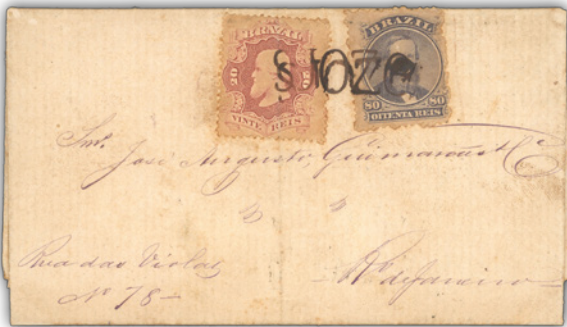 BRAZIL
20 20
VINTE REIS
BRAZIL
80 80
OITENTA REIS
Snr.
José Augusto Guimarães & Cª
Rua das Violas
Nº 78
Rº de Janeiro